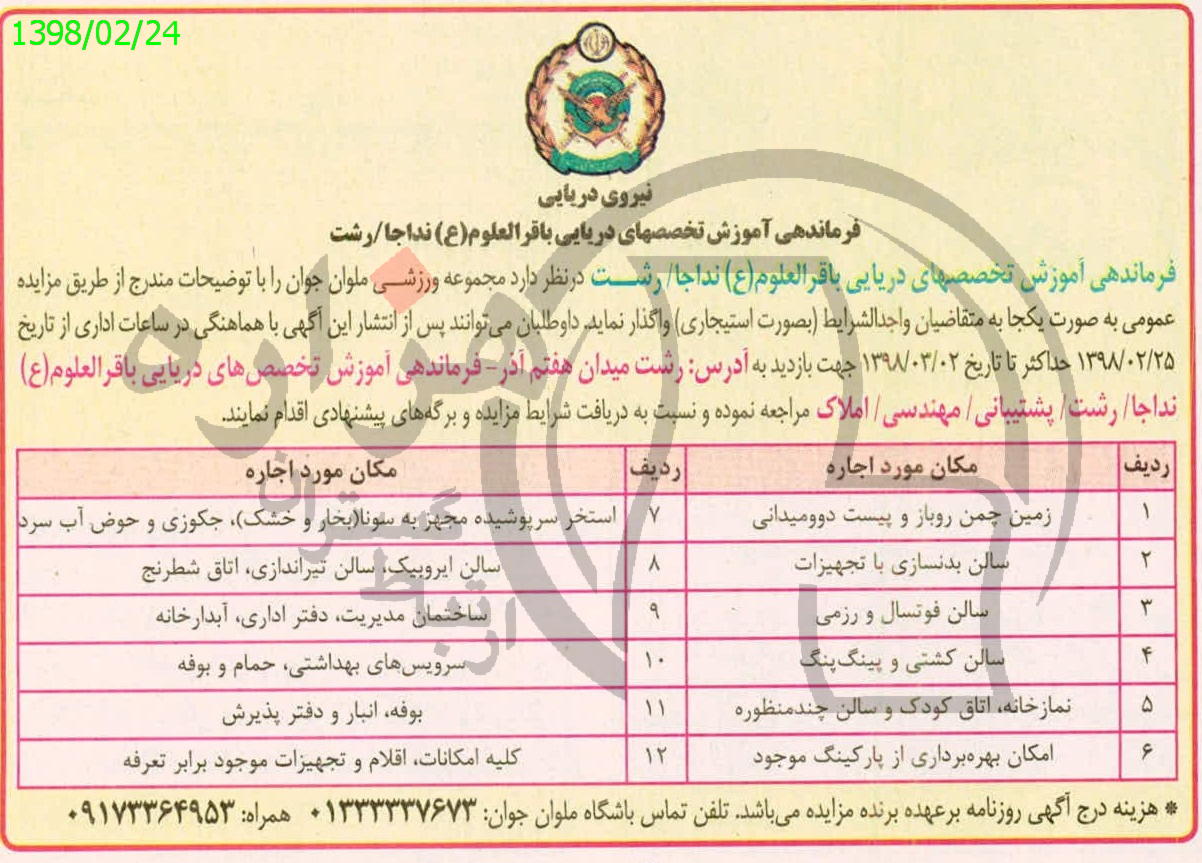 1398/02/24
نیروی دریایی
فرماندهی آموزش تخصصهای دریایی باقرالعلوم(ع) نداجا/رشت
فرماندهی آموزش تخصصهای دریایی باقرالعلوم(ع) نداجا/ رشـــت درنظر دارد مجموعه ورزشـــی ملوان جوان را با توضیحات مندرج از طریق مزایده
عمومی به صورت یکجا به متقاضیان واجدالشرایط (بصورت استیجاری) واگذار نماید. داوطلبان می‌توانند پس از انتشار این آگهی با هماهنگی در ساعات اداری از تاریخ
۱۳۹۸/۰۲/۲۵ حداکثر تا تاریخ ۱۳۹۸/۰۳/۰۲ جهت بازدید به آدرس: رشت میدان هفتم آذر - فرماندهی آموزش تخصص‌های دریایی باقرالعلوم(ع)
نداجا/ رشت/ پشتیبانی/ مهندسی/ املاک مراجعه نموده و نسبت به دریافت شرایط مزایده و برگه‌های پیشنهادی اقدام نمایند.
ردیف مکان مورد اجاره ردیف مکان مورد اجاره
۱ زمین چمن روباز و پیست دوومیدانی ۷ استخر سرپوشیده مجهز به سونا(بخار و خشک)، جکوزی و حوض آب سرد
۲ سالن بدنسازی با تجهیزات ۸ سالن ایروبیک، سالن تیراندازی، اتاق شطرنج
۳ سالن فوتسال و رزمی ۹ ساختمان مدیریت، دفتر اداری، آبدارخانه
۴ سالن کشتی و پینگ‌پنگ ۱۰ سرویس‌های بهداشتی، حمام و بوفه
۵ نمازخانه، اتاق کودک و سالن چندمنظوره ۱۱ بوفه، انبار و دفتر پذیرش
۶ امکان بهره‌برداری از پارکینگ موجود ۱۲ کلیه امکانات، اقلام و تجهیزات موجود برابر تعرفه
* هزینه درج آگهی روزنامه برعهده برنده مزایده می‌باشد. تلفن تماس باشگاه ملوان جوان: ۰۱۳۳۳۳۳۷۶۷۳ همراه: ۰۹۱۷۳۳۶۴۹۵۳
هزاره
گستران
ارتباط